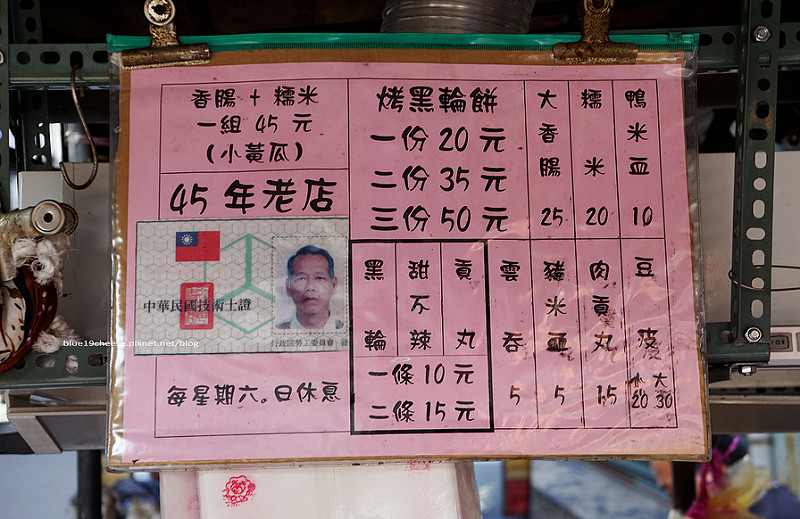 香腸 + 糯米
一組 45 元
(小黃瓜)
45 年老店
中華民國技術士證
行政院勞工委員會
每星期六。日休息
烤黑輪餅
一份 20 元
二份 35 元
三份 50 元
大香腸 25
糯米 20
鴨米血 10
黑輪
甜不辣
貢丸
一條 10 元
二條 15 元
雲吞 5
豬米血 5
肉貢丸 15
豆皮 小20 大30
blue19cheese.pixnet.net/blog